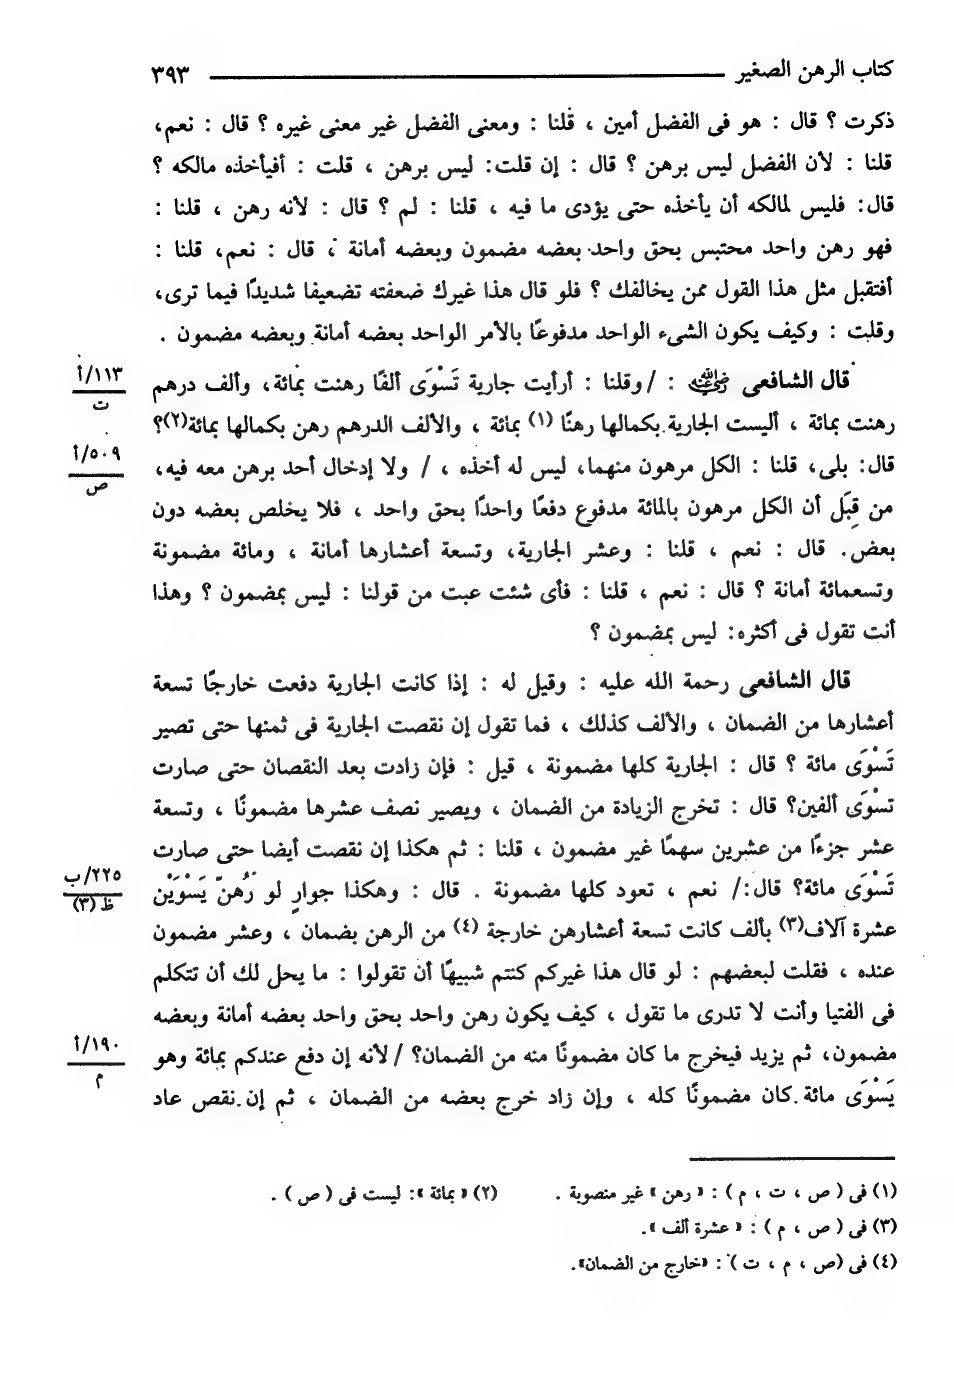 كتاب الرهن الصغير ٣٩٣
ذكرت ؟ قال : هو فى الفضل أمين ، قلنا : ومعنى الفضل غير معنى غيره ؟ قال : نعم،
قلنا : لأن الفضل ليس برهن ؟ قال : إن قلت: ليس برهن ، قلت : أفيأخذه مالكه ؟
قال: فليس لمالكه أن يأخذه حتى يؤدى ما فيه ، قلنا : لم ؟ قال : لأنه رهن ، قلنا :
فهو رهن واحد محتبس بحق واحد بعضه مضمون وبعضه أمانة ، قال : نعم، قلنا :
أفتقبل مثل هذا القول ممن يخالفك ؟ فلو قال هذا غيرك ضعفته تضعيفا شديدًا فيما ترى،
وقلت : وكيف يكون الشىء الواحد مدفوعًا بالأمر الواحد بعضه أمانة وبعضه مضمون .
قال الشافعى رضي الله عنه : / وقلنا : أرأيت جارية تَسْوَى ألفًا رهنت بمائة، وألف درهم
١١٣/أ
ت
رهنت بمائة ، أليست الجارية بكمالها رهنًا (١) بمائة ، والألف الدرهم رهن بكمالها بمائة(٢)؟
قال: بلى، قلنا : الكل مرهون منهما، ليس له أخذه ، / ولا إدخال أحد برهن معه فيه،
٥٠٩/أ
ص
من قِبَل أن الكل مرهون بالمائة مدفوع دفعًا واحدًا بحق واحد ، فلا يخلص بعضه دون
بعض. قال : نعم ، قلنا : وعشر الجارية، وتسعة أعشارها أمانة ، ومائة مضمونة
وتسعمائة أمانة ؟ قال : نعم ، قلنا : فأى شئت عبت من قولنا : ليس بمضمون ؟ وهذا
أنت تقول فى أكثره: ليس بمضمون ؟
قال الشافعى رحمة الله عليه : وقيل له : إذا كانت الجارية دفعت خارجًا تسعة
أعشارها من الضمان ، والألف كذلك ، فما تقول إن نقصت الجارية فى ثمنها حتى تصير
تَسْوَى مائة ؟ قال : الجارية كلها مضمونة ، قيل : فإن زادت بعد النقصان حتى صارت
تسْوَى ألفين؟ قال : تخرج الزيادة من الضمان ، ويصير نصف عشرها مضمونًا ، وتسعة
عشر جزءًا من عشرين سهمًا غير مضمون ، قلنا : ثم هكذا إن نقصت أيضا حتى صارت
تَسْوَى مائة؟ قال:/ نعم ، تعود كلها مضمونة . قال : وهكذا جوارٍ لو رُهنّ يَسْوَيْن
٢٢٥/ب
ظ (٣)
عشرة آلاف(٣) بألف كانت تسعة أعشارهن خارجة (٤) من الرهن بضمان ، وعشر مضمون
عنده ، فقلت لبعضهم : لو قال هذا غيركم كنتم شبيهًا أن تقولوا : ما يحل لك أن تتكلم
فى الفتيا وأنت لا تدرى ما تقول ، كيف يكون رهن واحد بحق واحد بعضه أمانة وبعضه
مضمون، ثم يزيد فيخرج ما كان مضمونًا منه من الضمان؟ / لأنه إن دفع عندكم بمائة وهو
١٩٠/أ
م
يَسْوَى مائة كان مضمونًا كله ، وإن زاد خرج بعضه من الضمان ، ثم إن نقص عاد
(١) فى ( ص ، ت ، م ) : « رهن » غير منصوبة . (٢) « بمائة »: ليست فى ( ص ) .
(٣) فى ( ص ، م ) : « عشرة ألف ».
(٤) فى (ص ، م ، ت ) : «خارج من الضمان».